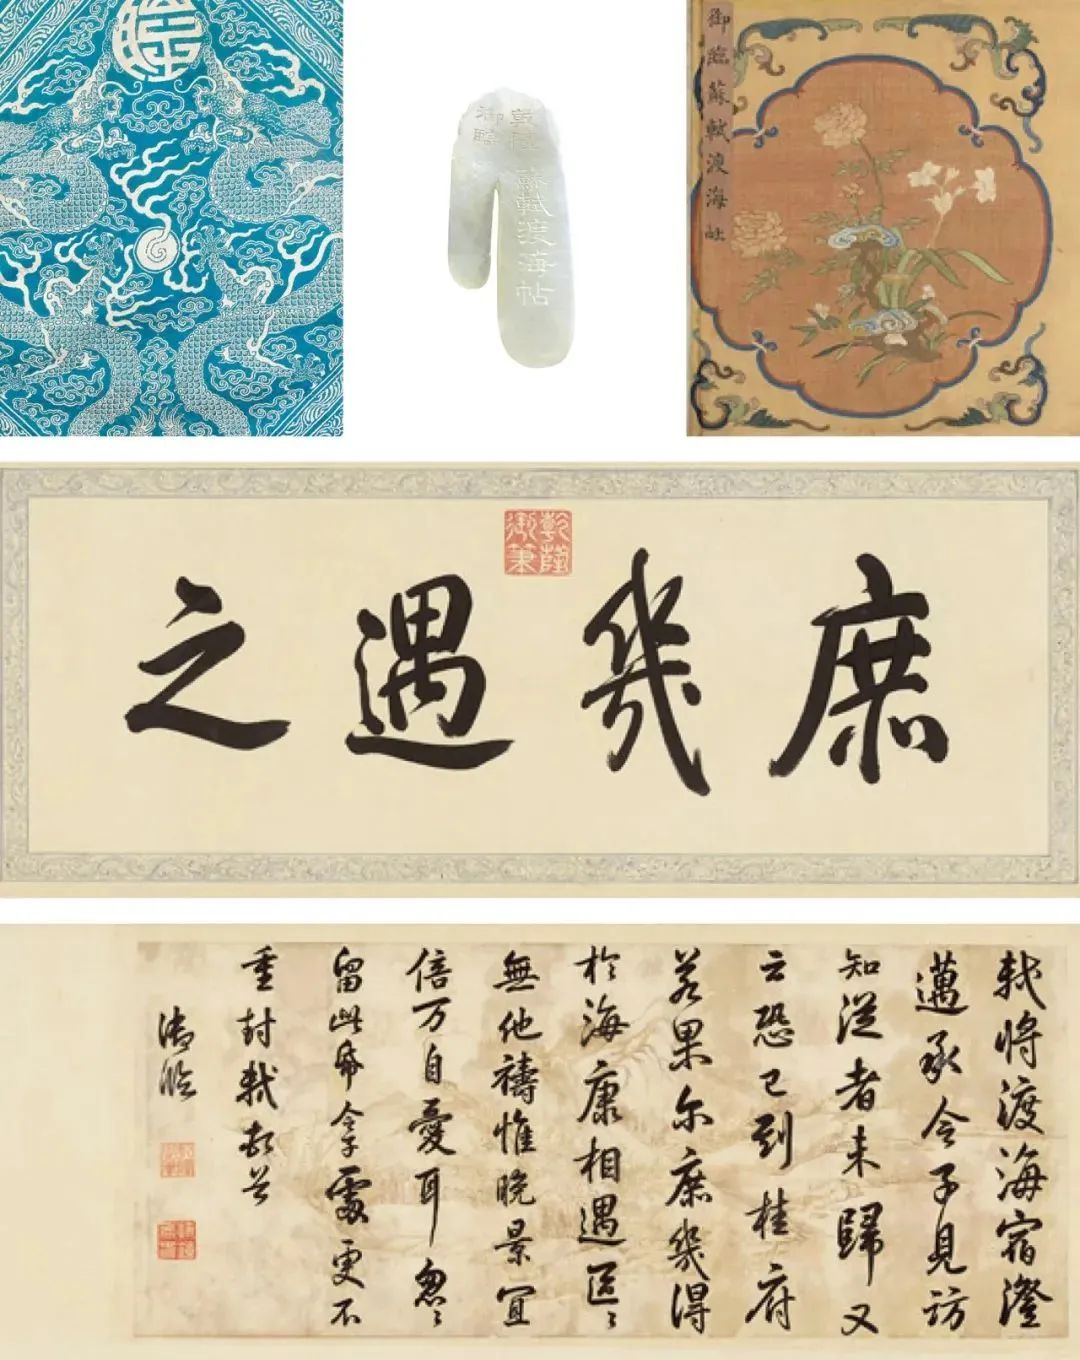 乾隆
御臨
蘇軾渡海帖
御臨蘇軾渡海帖
乾隆御筆
庶幾遇之
軾將渡海宿澄
邁承令子見訪
知從者未歸又
云恐已到桂府
若果尔庶幾得
於海康相遇區〻
無他禱惟晚景宜
倍万自愛耳忽〻
留此帋令子處更不
重封軾頓首
御臨